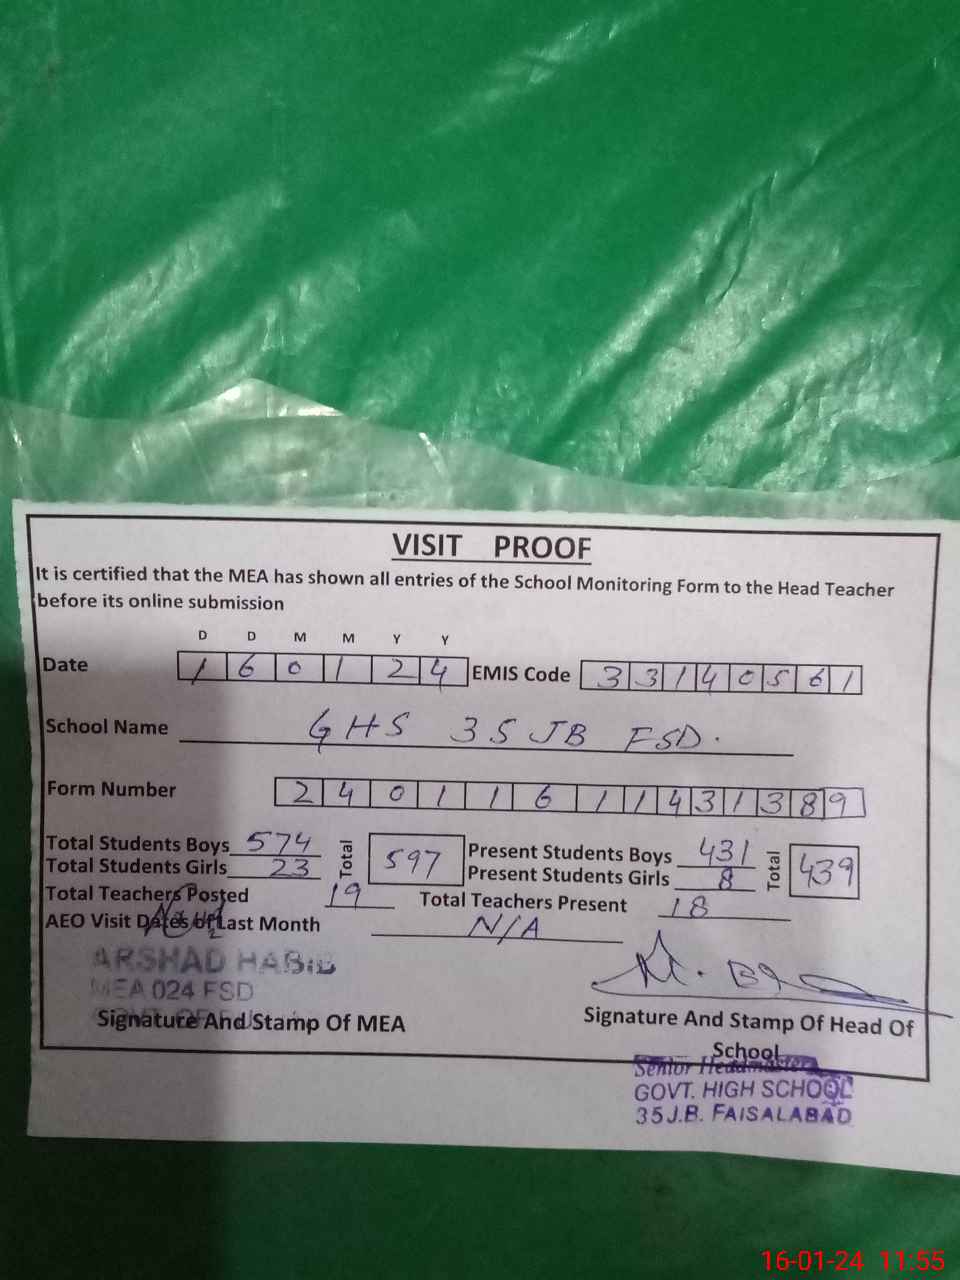 VISIT PROOF
It is certified that the MEA has shown all entries of the School Monitoring Form to the Head Teacher
before its online submission
D D M M Y Y
Date 1 6 0 1 2 4 EMIS Code 3 3 1 4 0 5 6 1
School Name GHS 35 JB FSD.
Form Number 2 4 0 1 1 6 1 1 4 3 1 3 8 9
Total Students Boys 574 Total 597 Present Students Boys 431 Total 439
Total Students Girls 23 Present Students Girls 8
Total Teachers Posted 19 Total Teachers Present 18
AEO Visit Dates of Last Month N/A
ARSHAD HABIB
MEA 024 FSD
Signature And Stamp Of MEA
Signature And Stamp Of Head Of
School
Senior Headmaster
GOVT. HIGH SCHOOL
35 J.B. FAISALABAD
16-01-24 11:55